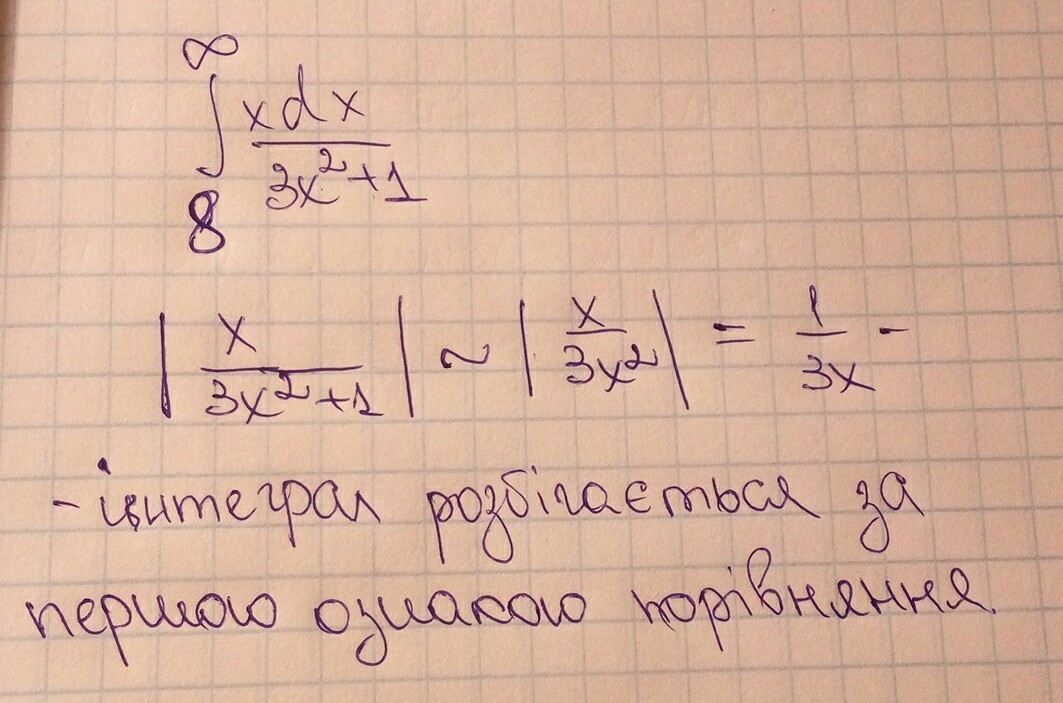 ∞
∫ xdx / 3x²+1
8
| x / 3x²+1 | ~ | x / 3x² | = 1 / 3x -
- інтеграл розбігається за
першою ознакою порівняння.